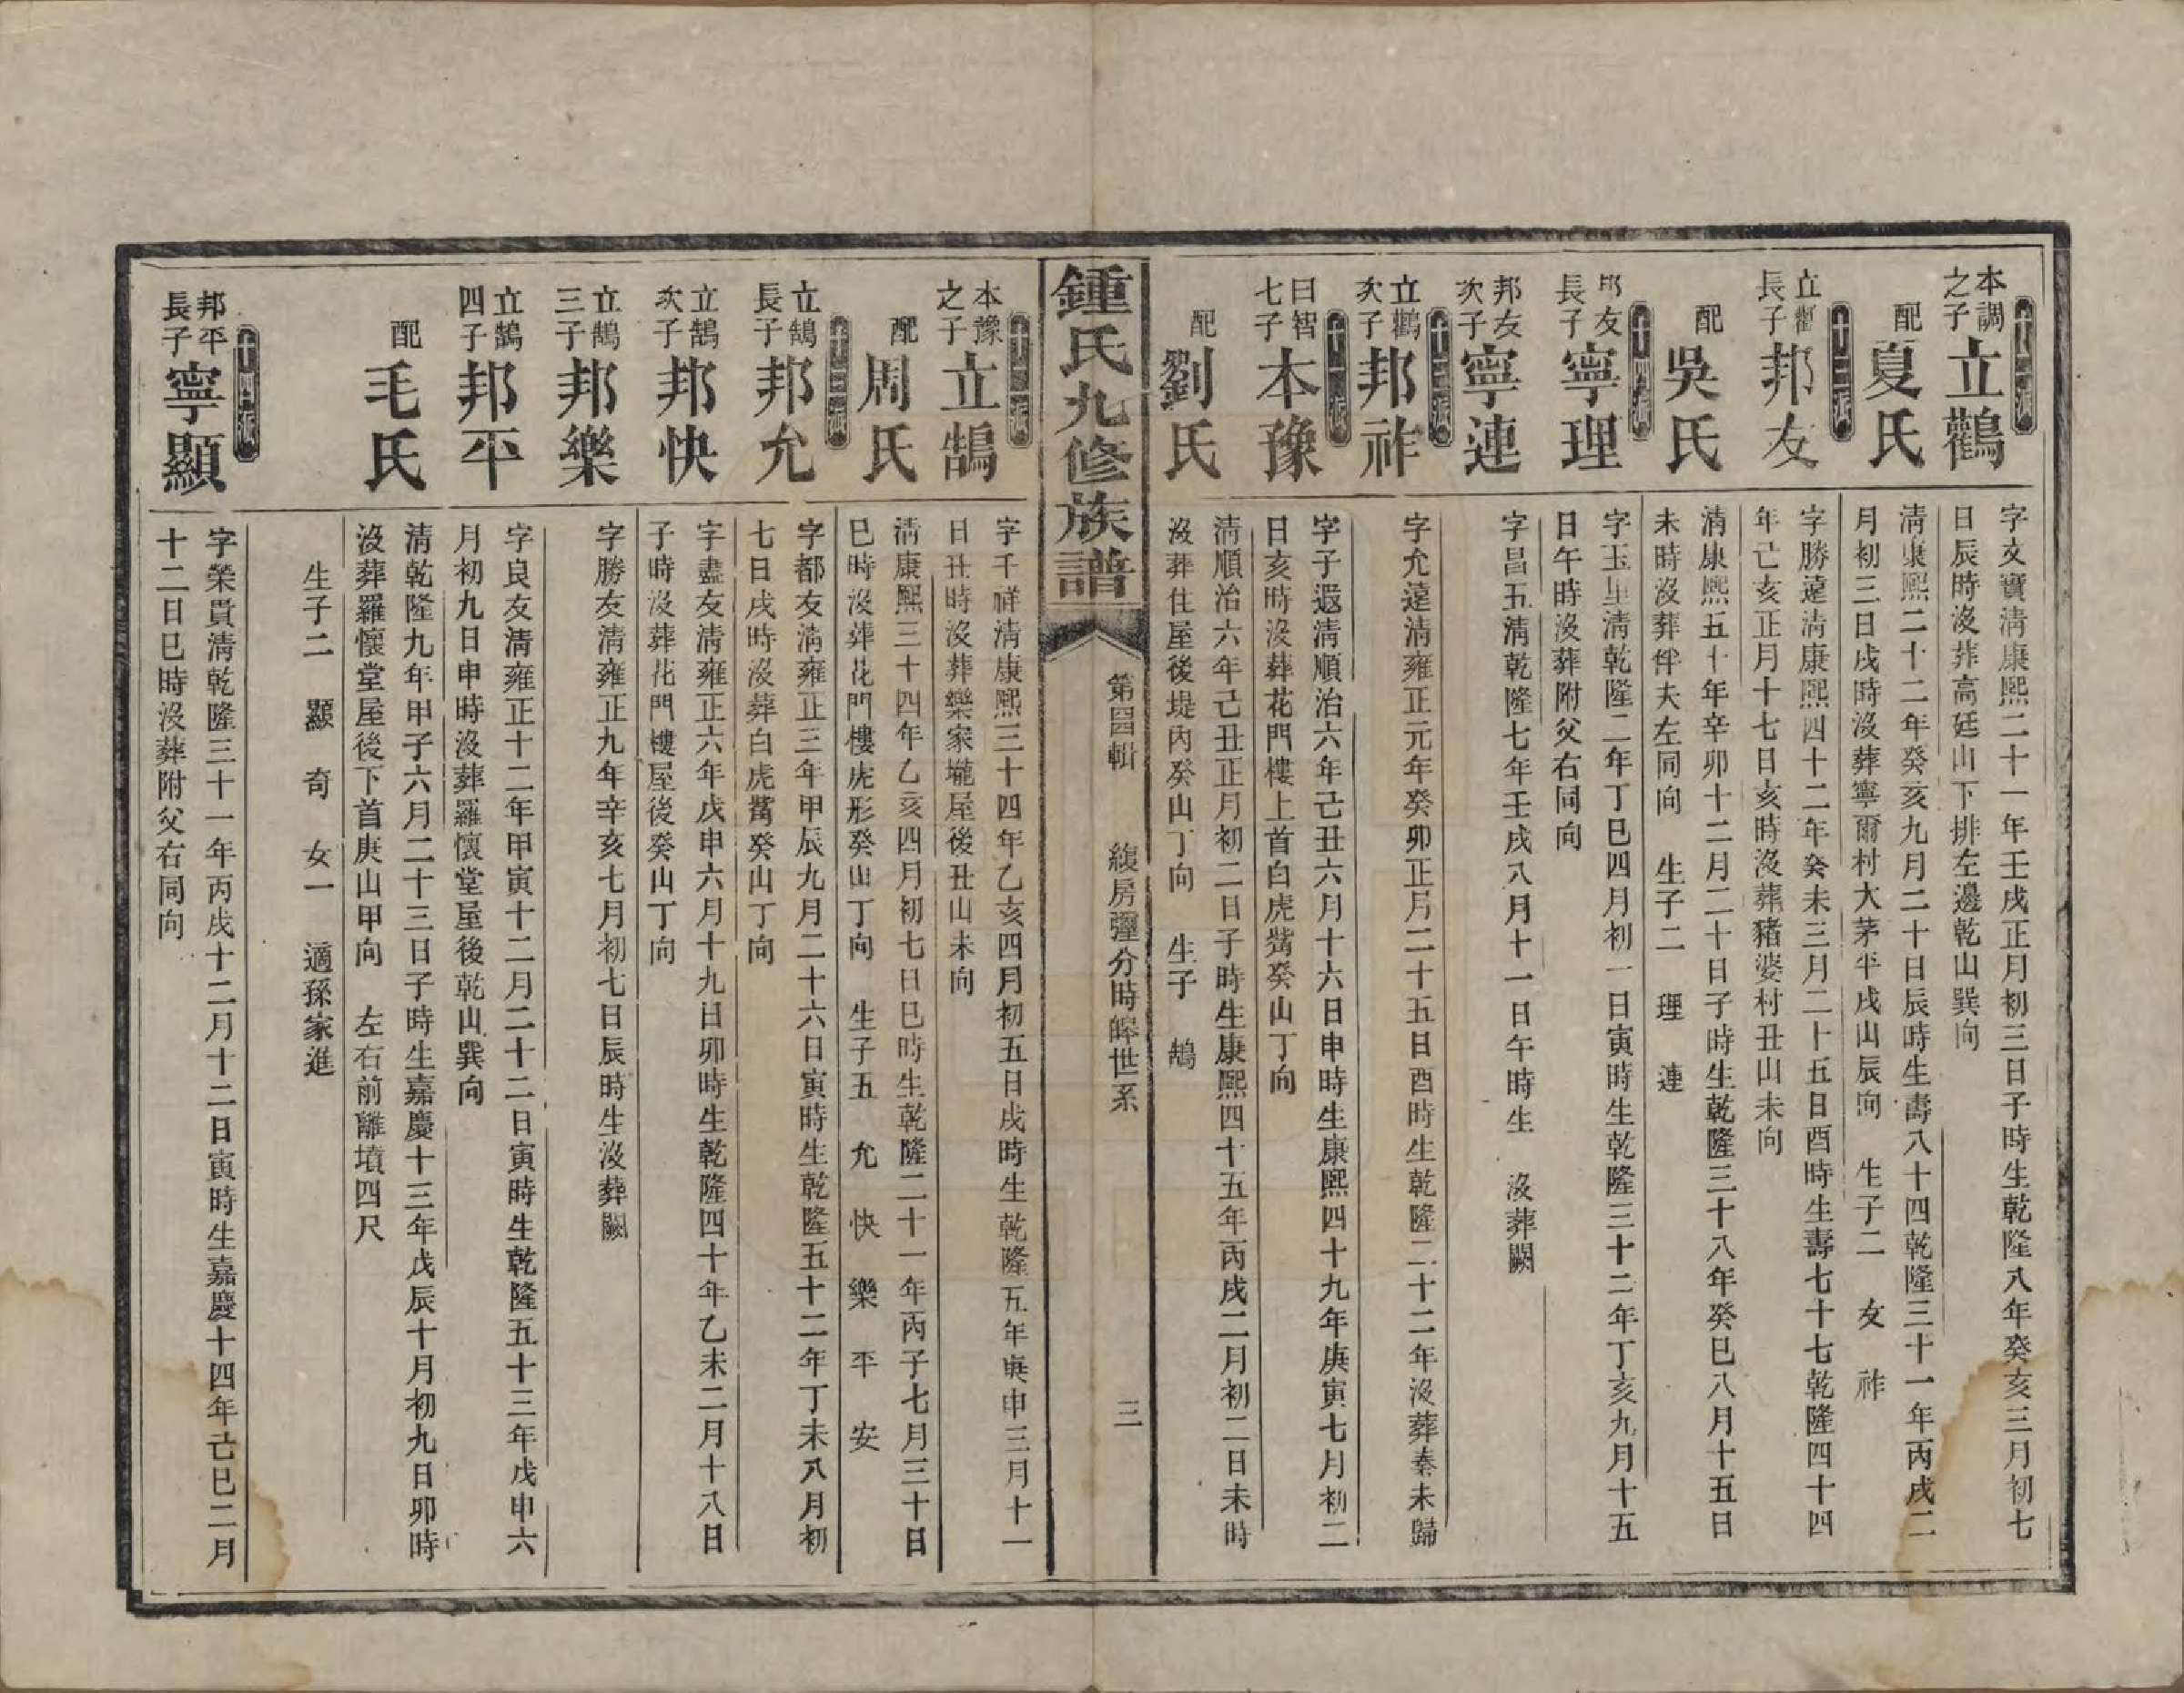 十二派
本調之子
立鸛
字文寶清康熙二十一年壬戌正月初三日子時生乾隆八年癸亥三月初七
日辰時沒葬高廷山下排左邊乾山巽向
配
夏氏
清康熙二十二年癸亥九月二十日辰時生壽八十四乾隆三十一年丙戌二
月初三日戌時沒葬寧爾村大茅平戌山辰向 生子二 友 祚
十三派
立鸛長子
邦友
字勝遠清康熙四十二年癸未三月二十五日酉時生壽七十七乾隆四十四
年己亥正月十七日亥時沒葬豬婆村丑山未向
配
吳氏
清康熙五十年辛卯十二月二十日子時生乾隆三十八年癸巳八月十五日
未時沒葬伴夫左同向 生子二 理 連
十四派
邦友長子
寧理
字玉里清乾隆二年丁巳四月初一日寅時生乾隆三十二年丁亥九月十五
日午時沒葬附父右同向
邦友次子
寧連
字昌五清乾隆七年壬戌八月十一日午時生 沒葬闕
十三派
立鸛次子
邦祚
字允遠清雍正元年癸卯正月二十五日酉時生乾隆二十二年沒葬秦未歸
十一派
曰智七子
本豫
字子遐清順治六年己丑六月十六日申時生康熙四十九年庚寅七月初二
日亥時沒葬花門樓上首白虎觜癸山丁向
配
劉氏
清順治六年己丑正月初二日子時生康熙四十五年丙戌二月初二日未時
沒葬住屋後堤內癸山丁向 生子 鵠
鍾氏九修族譜
第四輯 緮房彌分時皞世系
三
十二派
本豫之子
立鵠
字千祥清康熙三十四年乙亥四月初五日戌時生乾隆五年庚申三月十一
日丑時沒葬樂家壠屋後丑山未向
配
周氏
清康熙三十四年乙亥四月初七日巳時生乾隆二十一年丙子七月三十日
巳時沒葬花門樓虎形癸山丁向 生子五 允 快 樂 平 安
十三派
立鵠長子
邦允
字都友清雍正三年甲辰九月二十六日寅時生乾隆五十二年丁未八月初
七日戌時沒葬白虎觜癸山丁向
立鵠次子
邦快
字盡友清雍正六年戊申六月十九日卯時生乾隆四十年乙未二月十八日
子時沒葬花門樓屋後癸山丁向
立鵠三子
邦樂
字勝友清雍正九年辛亥七月初七日辰時生沒葬闕
立鵠四子
邦平
字良友清雍正十二年甲寅十二月二十二日寅時生乾隆五十三年戊申六
月初九日申時沒葬羅懷堂屋後乾山巽向
配
毛氏
清乾隆九年甲子六月二十三日子時生嘉慶十三年戊辰十月初九日卯時
沒葬羅懷堂屋後下首庚山甲向 左右前離墳四尺
生子二 顯 奇 女一 適孫家進
十四派
邦平長子
寧顯
字榮貴清乾隆三十一年丙戌十二月十二日寅時生嘉慶十四年己巳二月
十二日巳時沒葬附父右同向